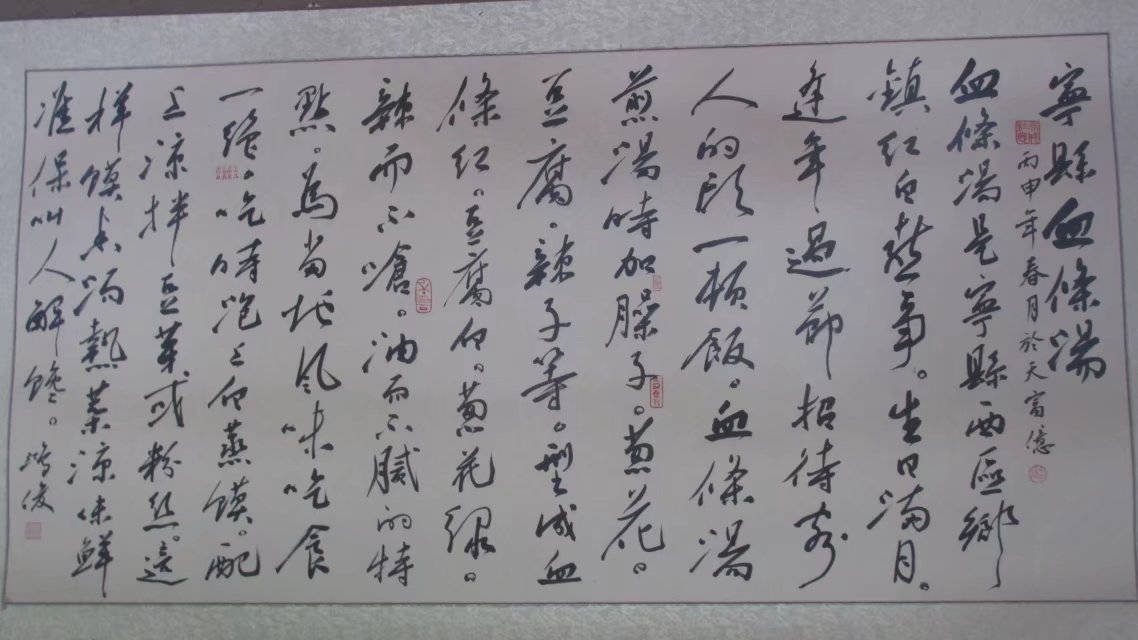 寧縣血條湯
丙申年春月於天富億
血條湯是寧縣西區鄉
鎮紅白燕事。生日滿月。
逢年過節招待客
人的頭一頓飯。血條湯
煎湯時加臊子。蔥花。
豆腐。辣子等。型成血
條紅。豆腐白。蔥花綠。
辣而不嗆。油而不膩的特
點。爲當地風味吃食
一絕。吃時泡上白蒸饃。配
上涼拌豆芽或粉絲。這
样饃湯熱菜涼味鮮
准保叫人解饞。鴻俊